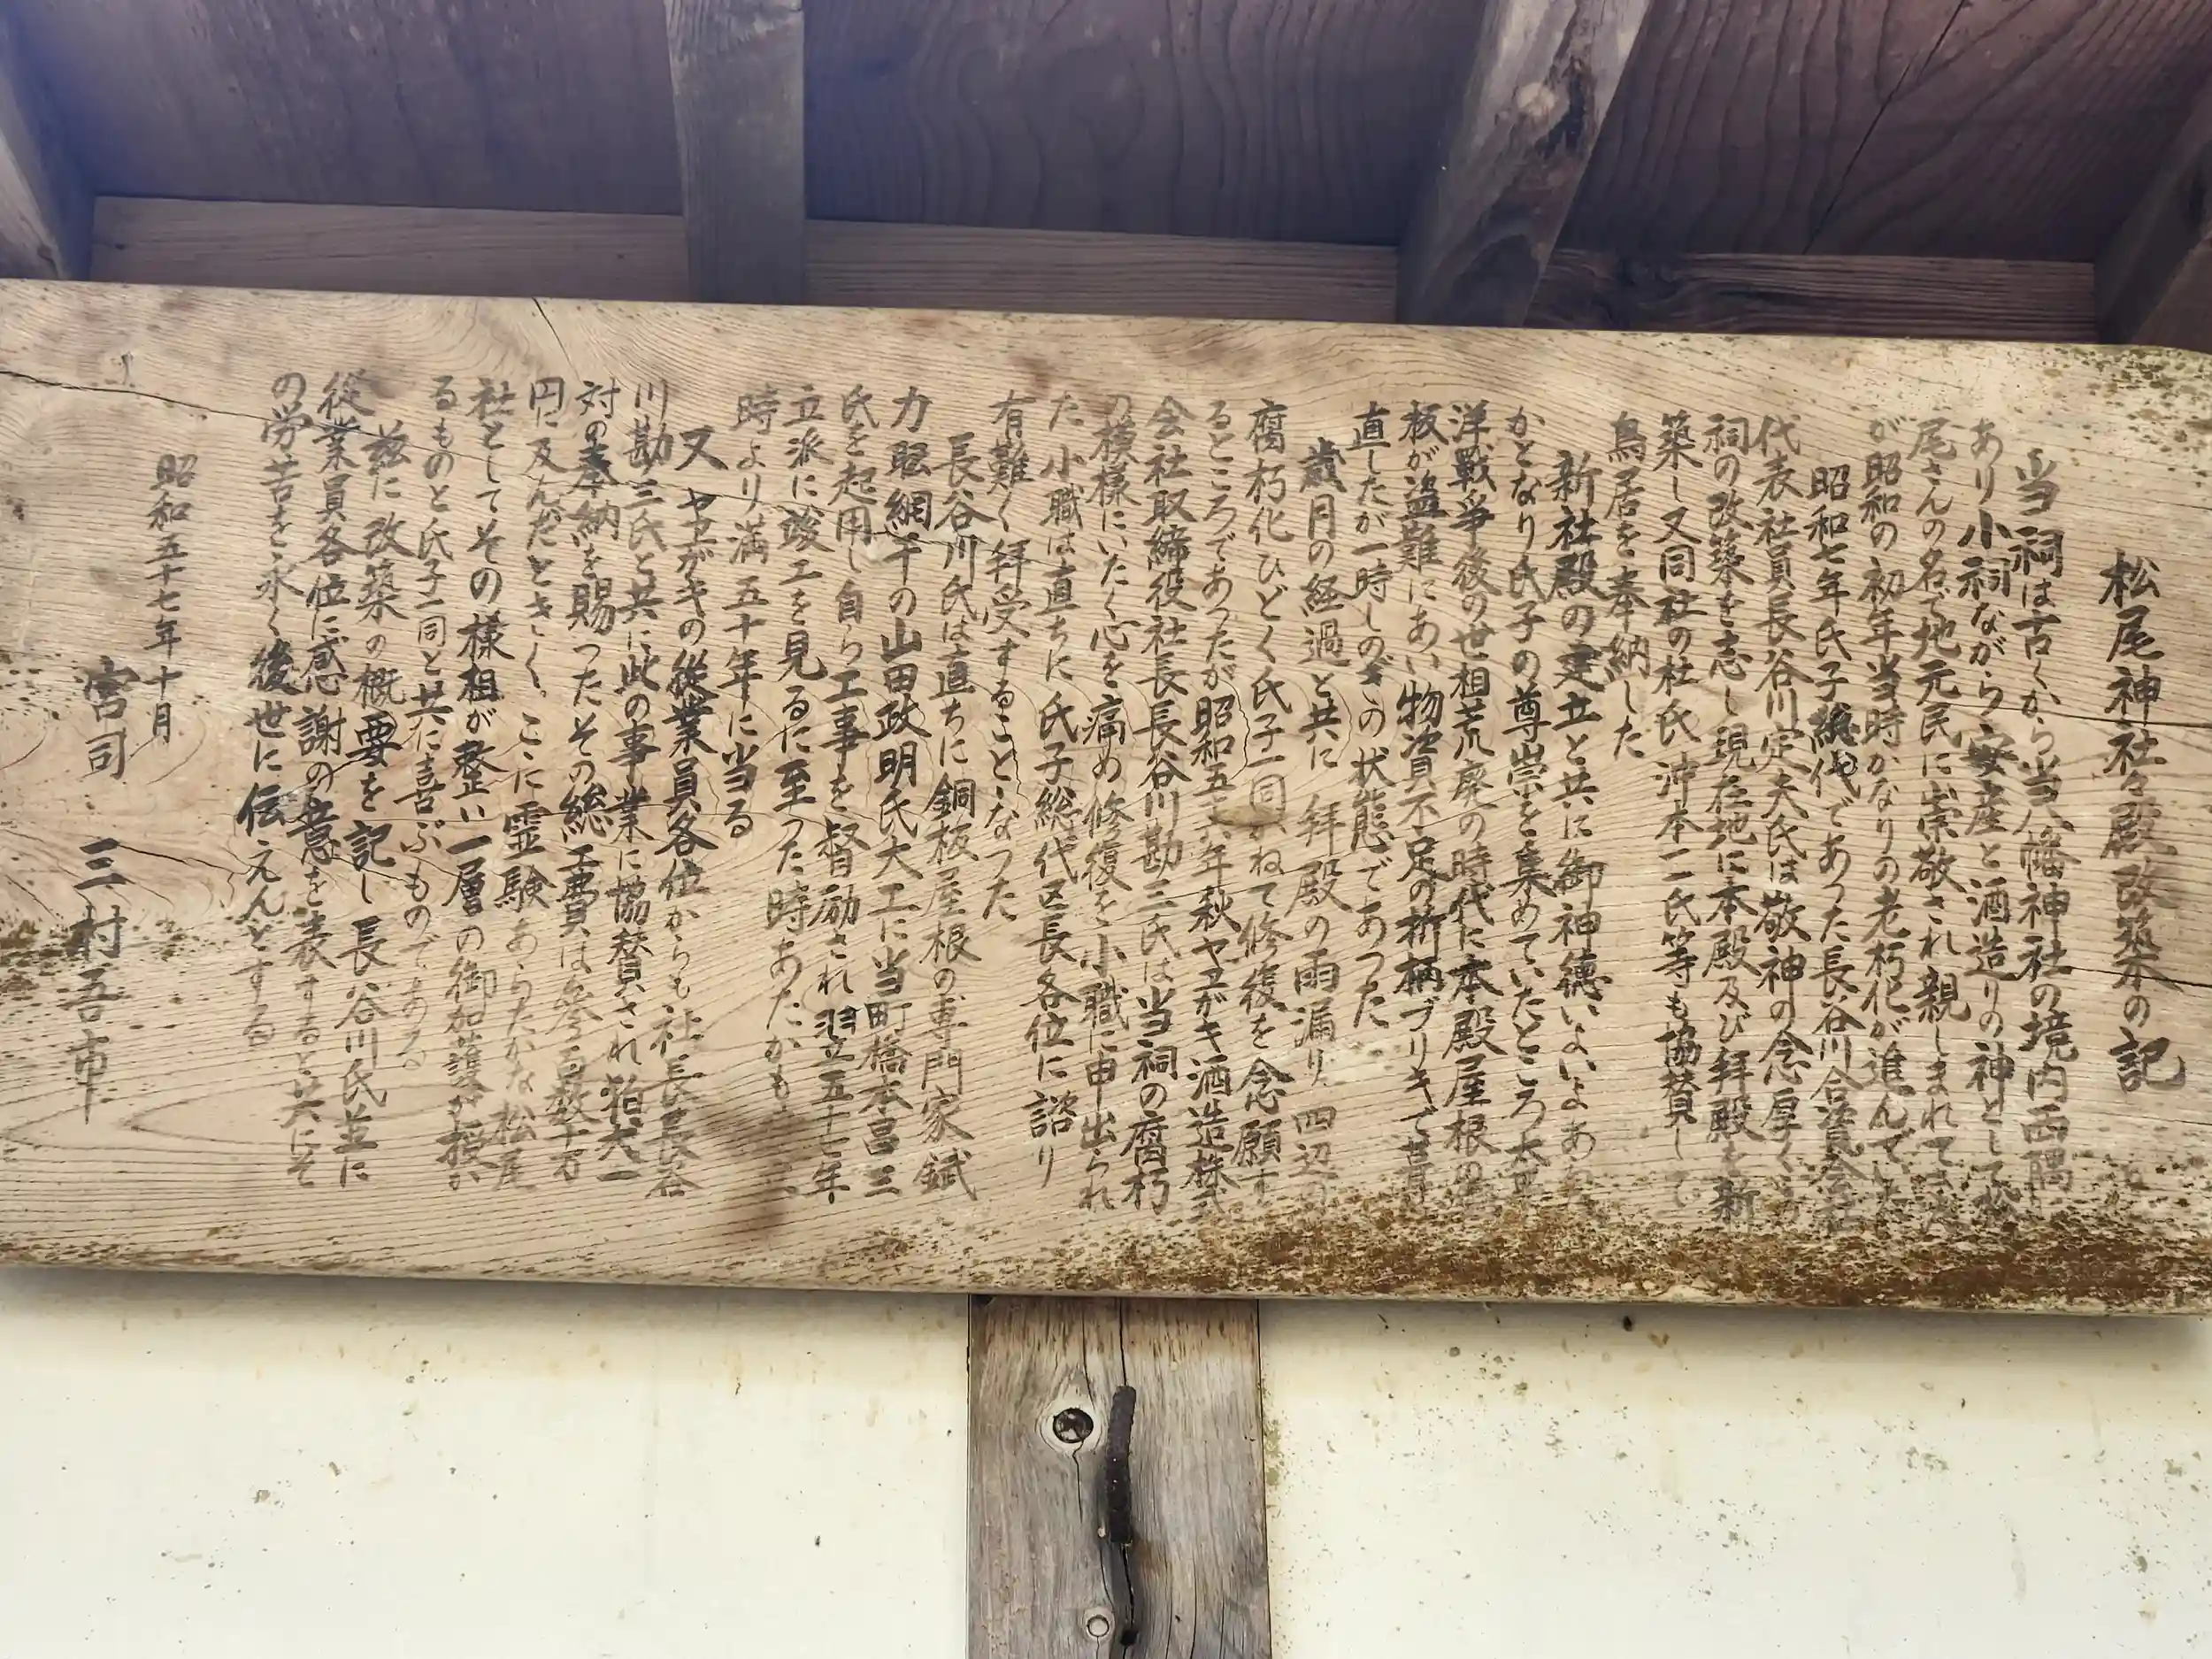 松尾神社々殿改築の記
当祠は古くから当八幡神社の境内西隅
あり小祠ながら安産と酒造りの神として松
尾さんの名で地元民に崇敬され親しまれてき
が昭和の初年当時かなりの老朽化が進んでいた
昭和七年氏子総代であった長谷川合資会社
代表社員長谷川定夫氏は敬神の念厚く
祠の改築を志し現在地に本殿及び拝殿を新
築し又同社の杜氏沖本一二氏等も協賛して
鳥居を奉納した
新社殿の建立と共に御神徳いよいよあ
かとなり氏子の尊崇を集めていたところ太平
洋戦争後の世相荒廃の時代に本殿屋根の
板が盗難にあい物資不足の折柄ブリキで葺
直したが一時しのぎの状態であった
歳月の経過と共に拝殿の雨漏り四辺の
腐朽化ひどく氏子一同かねて修復を念願す
るところであったが昭和五十六年秋ヤヱガキ酒造株式
会社取締役社長長谷川勘三氏は当祠の腐朽
の模様にいたく心を痛め修復を小職に申出られ
た小職は直ちに氏子総代区長各位に諮り
有難く拝受することゝなった
長谷川氏は直ちに銅板屋根の専門家錻
力 網干の山田政明氏大工に当町橋本昌三
氏を起用し自ら工事を督励され翌五十七年
立派に竣工を見るに至った時あたかも
時より満五十年に当る
又ヤヱガキの従業員各位からも社長長谷
川勘三氏と共に此の事業に協賛され狛犬一
対の奉納を賜ったその総工費は参百数十万
円に及んだときく。ここに霊験あらたかな松尾
社としてその様相が整い一層の御加護が授か
るものと氏子一同と共に喜ぶものである
茲に改築の概要を記し長谷川氏並に
従業員各位に感謝の意を表すると共にそ
の労苦を永く後世に伝えんとする
昭和五十七年十月
宮司 三村吾市